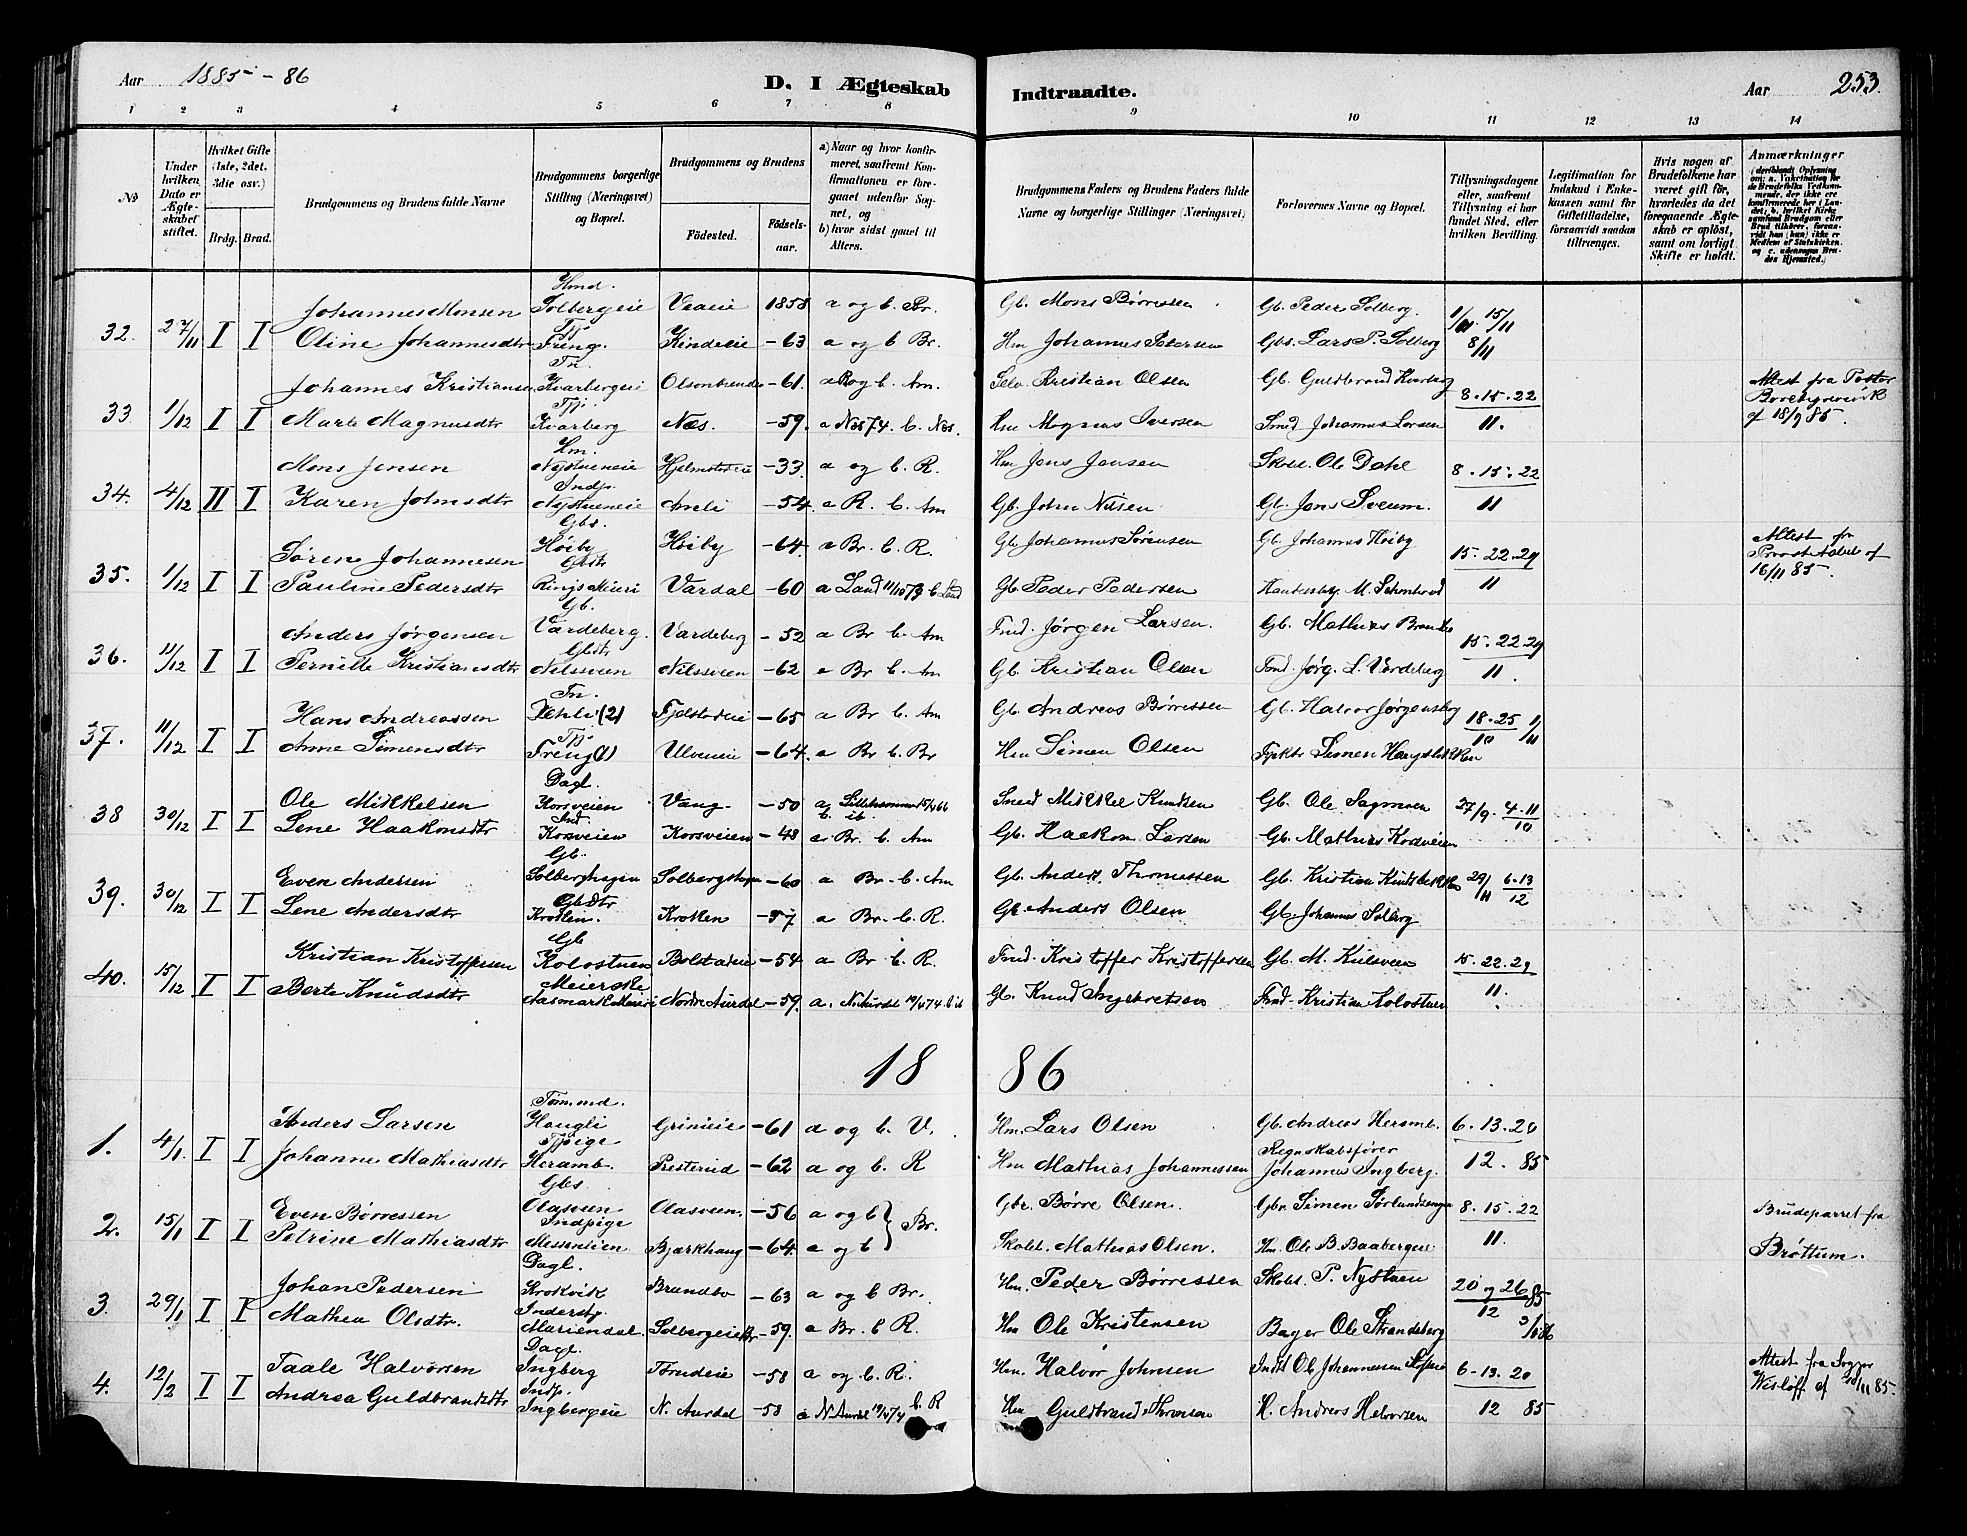 Aar 1885 - 86
D. I Ægteskab
Indtraadte.
Aar 253.
1 2 3 4 5 6 7 8 9 10 11 12 13 14
No
Under hvilken Dato er Ægteskabet stiftet.
Hvilket Gifte (1ste, 2det, 3die osv.)
Brdg. Brud.
Brudgommens og Brudens fulde Navne
Brudgommens borgerlige Stilling (Næringsvei) og Bopæl.
Brudgommens og Brudens
Fødested.
Fødselsaar.
a) Naar og hvor konfirmeret, saafremt Konfirmationen er foregaaet udenfor Sognet, og
b) hvor sidst gaaet til Alters.
Brudgommens Faders og Brudens Faders fulde Navne og borgerlige Stillinger (Næringsvei).
Forlovernes Navne og Bopæl.
Tillysningsdagene eller, saafremt Tillysning ei har fundet Sted, efter hvilken Bevilling.
Legitimation for Indskud i Enkekassen samt for Giftetilladelse, forsaavidt saadan tiltrænges.
Hvis nogen af Brudefolkene har været gift før, hvorledes da det foregaaende Ægteskab er opløst, samt om lovligt Skifte er holdt.
Anmærkninger
Hmd.
Johannes Monsen Solbergeie Vaaeie 1858 a og b. Br. Gb. Mons Børresen Gb. Peder Solberg. 1/11 15/11
32. 27/11 I I
Tpj.
Oline Johannesdtr Freng. Kindeeie -63 a og b Br. Hm Johannes Petersen Gbs. Lars P. Solberg 8/11
Tn.
Johannes Kristiansen Kvarbergeie -61. a R og b. Am. Selv. Kristian Olsen Gb. Guldbrand Kvarberg 8.15.22 Attest fra Pastor
33 1/12 I I
Tpj.
Marte Magnusdtr Kvarberg Næs. -59. a Næs 74. b. Næs. Hm Magnus Iversen Smed Johannes Larsen 11. af 18/9 85.
Hm.
Mons Jensen Nystueneie Hjelmstadeie -33 a og b. R. Hm Jens Jensen Skoll. Ole Dahl 8.15.22
34. 4/12 II I
Indp.
Karen Johnsdtr Nystueneie -54. a R. b. Am Gb. John Nilsen Gb. Jens Sveum. 11
Gbs.
Søren Johannesen Høiby Høiby -64. a Br. b. R. Gb. Johannes Sørensen Gb. Johannes Høiby 15.22.29 Attest fra
35. 1/12 I I
Gbdt.
Pauline Pedersdtr Rings Meieri Vardal -60 a Land 11/10 73 b Land Gb. Peder Pedersen 11 16/11 85.
Gb.
Anders Jørgensen Vardeberg. Vardeberg -52 a Br b. Am Fmd. Jørgen Larsen. Gb. Mathias 15.22.29
36. 11/12 I I
Gbdt.
Pernille Kristiansdtr Nilssveen Nilssveen -62 a Br b. Am Gb. Kristian Olsen Fmd. Jørg. L. Vardeberg 11.
Tn.
Hans Andreassen (2) Fjelstadeie -65 a Br b. Am Gb. Andreas Børressen Gb. Halvor 18.25 1/11
37. 11/12 I I
Tpj.
Anne Simensdtr Freng (1) Ulveneie -64. a Br b. Br Hm Simen Olsen Simen 10
Dagl.
Ole Mikkelsen Korsveien Vang. -50 a Lillehammer b. ib. Smed Mikkel Knudsen Gb. Ole Sagmoen 27/9. 4.11
38 30/12 I I
Ind.
Lene Haakonsdtr Korsveien Korsveien -48 a Br. b. Am Gb. Haakon Larsen Gb. Mathias Korsveien 10
Gb.
Even Andersen Solberghagen Solbergshagen -60 a Br. b. Am Gb. Anders Thomassen Gb. Kristian 29/11 6.13
39. 30/12 I I
Gbdtr
Lene Andersdtr Kroken. Kroken -57 a Br. b. R. Gb. Anders Olsen Gb. Johannes Solberg 12
Gb
Kristian Kristoffersen Kolostuen Bolstadeie -54 a Br. b. R. Fmd. Kristoffer Kristoffersen Gb. M. Kulsveen 15.22.29
40. 15/12 I I
Meierske
Berte Knudsdtr Aasmark Meieri Nordre Aurdal -59. a. N. Aurdal 19/4 74 b ib Gb. Knud Ingebretsen Fmd. Kristian Kolostuen 11.
18 86
Tømmmd.
Anders Larsen Haugli Grimeie -61 a og b. V. Hm. Lars Olsen Gb. Andreas Heramb. 6.13.20
1. 4/1. I I
Tpige Regnskabsfører
Johanne Mathiasdtr Heramb. Presterud -62 a og b. R Hm Mathias Johannessen Johannes Ingberg. 12. 85
Gbs.
Even Børressen Olasveen Olasveen. -56 a og b } Br. Gbr. Børre Olsen. Gbr Simen Sørlundsengen 8.15.22 Brudeparret fra
2. 15/1 I I
Indpige
Petrine Mathiasdtr Messenlien Bjærkhaug -64. a og b Skoll. Mathias Olsen. Hm. Ole B. Baabergeie 11. Brøttum.
Dagl.
Johan Pedersen Krokvik Brandbo -63 a og b Br. Hm. Peder Børressen Skoll. P. Nystuen 20 og 26 85
3. 29/1 I I
Inderstp. 12
Mathea Olsdtr. Mariendal. Solbergeie Br -59. a Br. b R. Hm Ole Kristensen Bager Ole Strandberg 3/1 86
Dagl.
Taale Halvorsen Ingberg -58 a og b. R. Hm. Halvor Johnsen Indst Ole Johannessen 6.13.20 Attest fra Sogpr
4. 12/2 I I
Indp.
Andrea Guldbrandsdtr Ingbergeie N. Aurdal -58 a N. Aurdal 19/4 74 b. R Hm Guldbrand Thronsen H. Anders Halvorsen 12 85 Wisløff af 30/11 85.